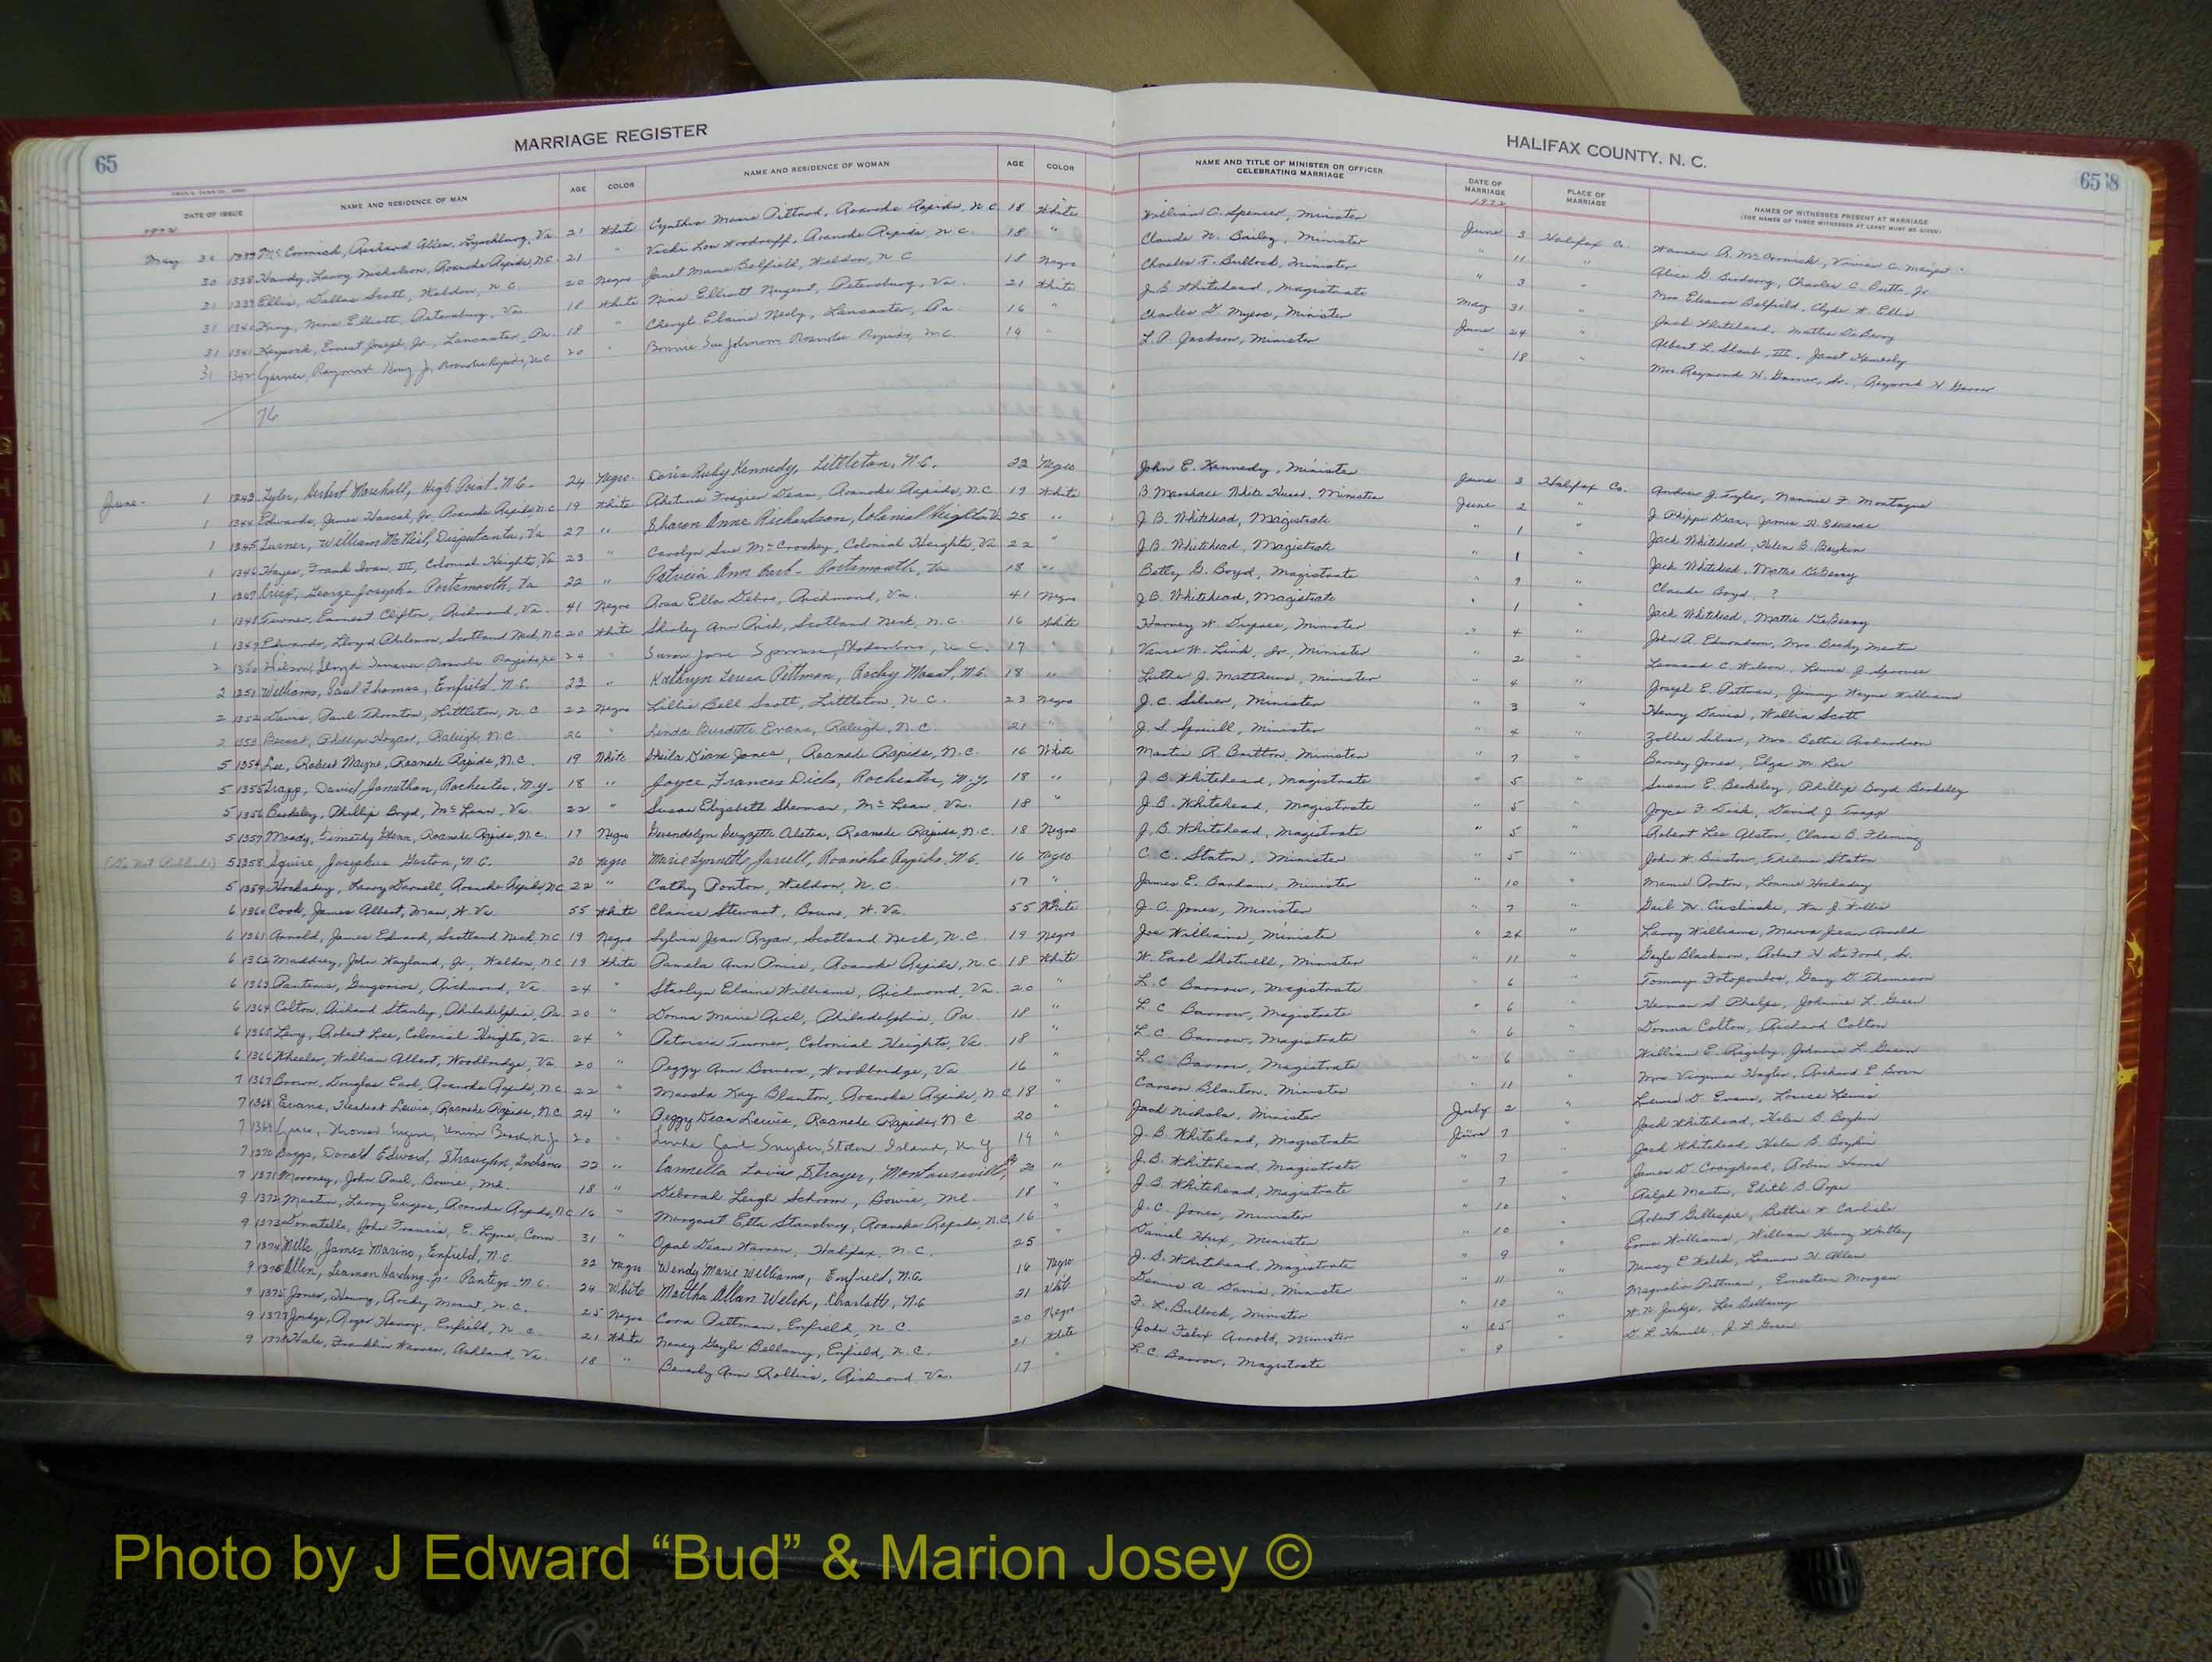 MARRIAGE REGISTER
HALIFAX COUNTY, N. C.
65
65
DATE OF ISSUE NAME AND RESIDENCE OF MAN AGE COLOR NAME AND RESIDENCE OF WOMAN AGE COLOR NAME AND TITLE OF MINISTER OR OFFICER CELEBRATING MARRIAGE DATE OF MARRIAGE PLACE OF MARRIAGE NAMES OF WITNESSES PRESENT AT MARRIAGE (THE NAMES OF THREE WITNESSES AT LEAST MUST BE GIVEN)
1972 1972
May 30 McCormick, Richard Allen, Lynchburg, Va 21 White Cynthia Marie Pittard, Roanoke Rapids, N.C. 18 White William C. Spencer, Minister June 3 Halifax Co. Warren R. McCormick
30 1338 Hardy, Larry Nicholson, Roanoke Rapids, N.C. 21 " Vickie Lou Woodruff, Roanoke Rapids, N.C. 18 " Claude N. Bailey, Minister " 11 " Charles C. Butts, Jr.
31 1339 Ellis, Dallas Scott, Weldon, N.C. 20 Negro Janet Marie Belfield, Weldon, N.C. 18 Negro Charles T. Bullock, Minister " 3 " Mrs. Eleanor Belfield, Clyde H. Ellis
31 1340 King, Nina Elliott, Petersburg, Va. 18 White Nina Elliott Nugent, Petersburg, Va. 21 White J.B. Whitehead, Magistrate May 31 " Jack Whitehead, Mattie DeBerry
31 1341 Ernest Joseph, Jr., Lancaster, Pa. 18 " Cheryl Elaine Neely, Lancaster, Pa. 16 Charles G. Myers, Minister June 24 " Albert L. Staub, III, Janet
31 1342 Garner, Raymond King Jr, Roanoke Rapids, N.C. 20 " Bonnie Sue Johnson Roanoke Rapids, N.C. 19 " L.P. Jackson, Minister " 18 Mrs. Raymond H. Garner, Sr., Raymond H. Garner
76
June 1 1343 Tyler, Herbert Marshall, High Point, N.C. 24 Negro Doris Ruby Kennedy, Littleton, N.C. 22 Negro John E. Kennedy, Minister June 3 Halifax Co. Andrew J. Tyler, Nannie F. Montague
1 1344 Edwards, James Hascal, Jr. Roanoke Rapids, N.C. 19 White Frazier Dean, Roanoke Rapids, N.C. 19 White B. Marshall White, Minister June 2 " J. Phipps Dean, James H. Edwards
1 1345 Turner, William McNeil, Disputanta, Va 27 " Sharon Anne Richardson, Colonial Heights, Va 25 " J.B. Whitehead, Magistrate " 1 " Jack Whitehead, Helen B. Boykin
1 1346 Hayes, Frank Ivan, III, Colonial Heights, Va 23 " Carolyn Sue McCroskey, Colonial Heights, Va 22 " J.B. Whitehead, Magistrate " 1 " Jack Whitehead, Mattie DeBerry
1 1347 Crisp, George Joseph, Portsmouth, Va 22 " Patricia Ann Barb, Portsmouth, Va 18 " Betty G. Boyd, Magistrate " 9 " Claude Boyd, ?
1 1348 Turner, Earnest Clifton, Richmond, Va. 41 Negro Rosa Ella Debro, Richmond, Va. 41 Negro J.B. Whitehead, Magistrate " 1 " Jack Whitehead, Mattie DeBerry
1 1349 Edwards, Lloyd Philemon, Scotland Neck, N.C. 20 White Shirley Ann Rich, Scotland Neck, N.C. 16 White Harvey W. Dupree, Minister " 4 " John A. Edmondson, Mrs. Becky Martin
2 1350 Wilson, Lloyd Roanoke Rapids, N.C. 24 " Susan Jane Sprouse, N.C. 17 " Vance W. Link, Jr., Minister " 2 " Leonard C. Wilson, Lewis J. Sprouse
2 1351 Williams, Paul Thomas, Enfield, N.C. 22 " Kathryn Teresa Pittman, Rocky Mount, N.C. 18 " Luther J. Matthews, Minister " 4 " Joseph E. Pittman, Jimmy Wayne Williams
2 1352 Davis, Paul Thornton, Littleton, N.C. 22 Negro Lillie Bell Scott, Littleton, N.C. 23 Negro J.C. Silver, Minister " 3 " Henry Davis, Willia Scott
2 1353 Phillip Hozar, Raleigh, N.C. 26 " Linda Burdette Evans, Raleigh, N.C. 21 " J.S. Spruill, Minister " 4 " Zollie Silver, Mrs. Bettie Richardson
5 1354 Lee, Robert Wayne, Roanoke Rapids, N.C. 19 White Sheila Diane Jones, Roanoke Rapids, N.C. 16 White Martin R. Britton, Minister " 7 " Barney Jones, Elza M. Lee
5 1355 Trapp, David Jonathan, Rochester, N.Y. 18 " Joyce Frances Dick, Rochester, N.Y. 18 " J.B. Whitehead, Magistrate " 5 " Susan E. Berkeley, Phillip Boyd Berkeley
5 1356 Berkeley, Phillip Boyd, McLean, Va. 22 " Susan Elizabeth Sherman, McLean, Va. 18 " J.B. Whitehead, Magistrate " 5 " Joyce F. Dick, David J. Trapp
5 1357 Moody, Timothy Glenn, Roanoke Rapids, N.C. 19 Negro Gwendolyn Alston, Roanoke Rapids, N.C. 18 Negro J.B. Whitehead, Magistrate " 5 " Robert Lee Alston, Clara B. Fleming
(Do Not Publish) 5 1358 Squire, Josephus Gaston, N.C. 20 Negro Marie Lynnette Jarrell, Roanoke Rapids, N.C. 16 Negro C.C. Staton, Minister " 5 " John W. Thelma Staton
5 1359 Hockaday, Larry Darnell, Roanoke Rapids, N.C. 22 " Cathy Ponton, Weldon, N.C. 17 " James E. Banham, Minister " 10 " Mamie Ponton, Lonnie Hockaday
6 1360 Cook, James Albert, Man, W. Va. 55 White Clarice Stewart, W. Va. 55 White J.C. Jones, Minister " 7 " Gail H. Wm. J. Willis
6 1361 Arnold, James Edward, Scotland Neck, N.C. 19 Negro Sylvia Jean Ryan, Scotland Neck, N.C. 19 Negro Joe Williams, Minister " 24 " Larry Williams, Marva Jean Arnold
6 1362 Maddrey, John Wayland, Jr., Weldon, N.C. 19 White Pamela Ann Price, Roanoke Rapids, N.C. 18 White W. Earl Shotwell, Minister " 11 " Gayle Blackmon, Robert H. DeFord, Sr.
6 1363 Grigorios, Richmond, Va. 24 " Starlyn Elaine Williams, Richmond, Va. 20 " L.C. Barrow, Magistrate " 6 " Tommy Fotopoulos, Gary D. Thomason
6 1364 Colton, Richard Stanley, Philadelphia, Pa. 20 " Donna Marie Rich, Philadelphia, Pa. 18 " L.C. Barrow, Magistrate " 6 " Herman S. Phelps, Johnnie L. Green
6 1365 Levy, Robert Lee, Colonial Heights, Va. 24 " Patricia Turner, Colonial Heights, Va. 18 " L.C. Barrow, Magistrate " 6 " Donna Colton, Richard Colton
6 1366 Wheeler, William Albert, Woodbridge, Va 20 " Peggy Ann Bowers, Woodbridge, Va 16 " L.C. Barrow, Magistrate " 6 " William E. Rigsby, Johnnie L. Green
7 1367 Brown, Douglas Earl, Roanoke Rapids, N.C. 22 " Marsha Kay Blanton, Roanoke Rapids, N.C. 18 " Carson Blanton, Minister " 11 " Mrs. Virginia Hagler, Richard E. Brown
7 1368 Evans, Herbert Lewis, Roanoke Rapids, N.C. 24 " Peggy Dean Lewis, Roanoke Rapids, N.C 20 " Jack Nichols, Minister July 2 " Lewis D. Evans, Louise Lewis
7 1369 Thomas Eugene, Union Beach, N.J. 20 " Linda Gail Snyder, Staten Island, N.Y 19 " J.B. Whitehead, Magistrate June 7 Jack Whitehead, Helen B. Boykin
7 1370 Boggs, Donald Edward, Straughn, Indiana 22 " Cannella Louise Strayer, Montoursville, Pa 20 " J.B. Whitehead, Magistrate " 7 " Jack Whitehead, Helen B. Boykin
7 1371 Mooney, John Paul, Bowie, Md. 18 " Deborah Leigh Schrom, Bowie, Md. 18 " J.B. Whitehead, Magistrate " 7 " James D. Craighead, Robin
9 1372 Martin, Larry Eugene, Roanoke Rapids, N.C. 16 " Margaret Etta Stansbury, Roanoke Rapids, N.C. 16 " J.C. Jones, Minister " 10 " Ralph Martin, Edith B. Pope
9 1373 Donatello, John Francis, E. Lyme, Conn. 31 " Opal Dean Warren, Halifax, N.C. 25 Daniel Hux, Minister " 10 " Robert Gillespie, Bettie W. Carlisle
7 1374 James Marino, Enfield, N.C. 22 Negro Wendy Marie Williams, Enfield, N.C. 16 Negro J.B. Whitehead, Magistrate " 9 " Williams, William Henry Whitley
9 1375 Allen, Leamon Harding Jr. Pantego, N.C. 24 White Martha Allan Welsh, Charlotte, N.C 21 White Dennis A. Davis, Minister " 11 " Nancy E. Welsh, Leamon H. Allen
9 1375 Jones, Henry, Rocky Mount, N.C. 25 Negro Cora Pittman, Enfield, N.C. 20 Negro F.L. Bullock, Minister " 10 Magnolia Pittman, Earnestine Morgan
9 1377 Judge, Roger Henry, Enfield, N.C. 21 White Nancy Gayle Bellamy, Enfield, N.C. 21 White John Felix Arnold, Minister " 25 " W.N. Judge, Leo Bellamy
9 1378 Hale, Franklin Warren, Ashland, Va. 18 " Beverly Ann Rollins, Richmond Va. 17 " L.C. Barrow, Magistrate " 9 " D.L. Hamill, J.L. Green
Photo by J Edward “Bud” & Marion Josey ©